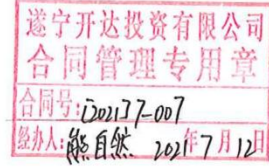 遂宁开达投资有限公司
合同管理专用章
合同号:i2021J7-007
经办人:熊自然 2021年7月12日